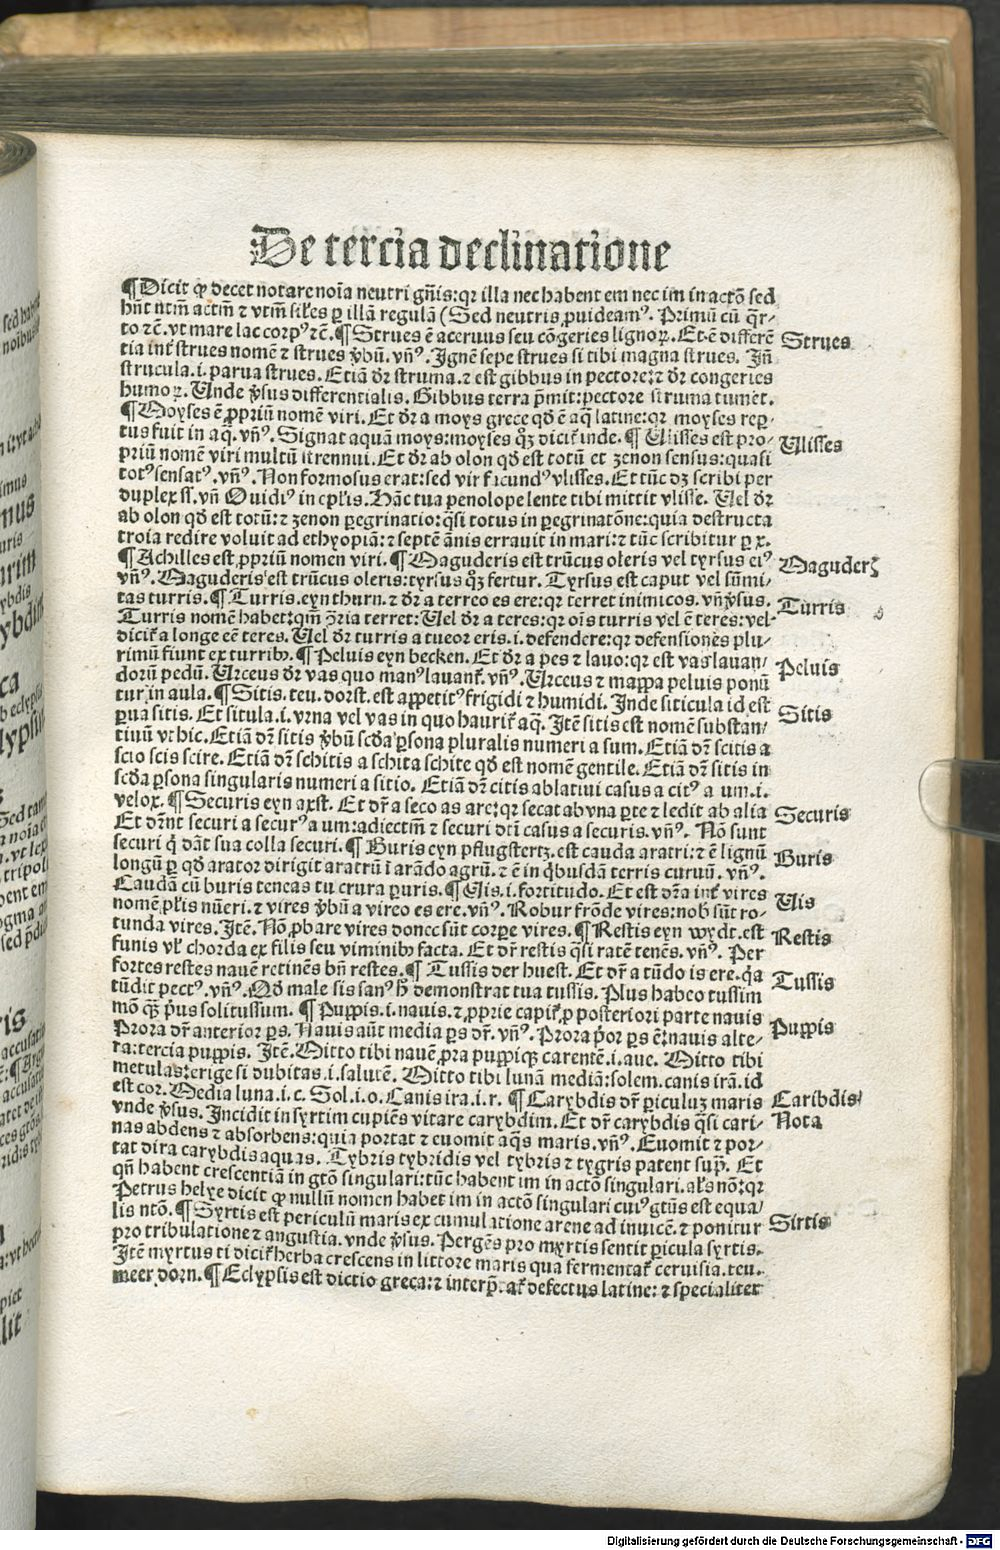 De tercia declinatione
¶Dicit ꝙ decet notare noīa neutri gñis: qr illa nec habent em nec im in actō sed
hñt ntm̄ actm̄ ⁊ vtm̄ sil'es ꝑ illā regulā (Sed neutris ꝓuideamꝰ. Primū cū q̄r-
to ⁊c̄. vt mare lac corpꝰ ⁊c̄. ¶Strues ē aceruus seu cōgeries lignoꝝ. Et ē differē
Strues
tia int̄ strues nomē ⁊ strues v̄bū. vñꝰ. Ignē sepe strues si tibi magna strues. Iñ
strucula .i. parua strues. Etiā dr̄ struma. ⁊ est gibbus in pectore: ⁊ dr̄ congeries
humoꝝ. Unde v̄sus differentialis. Gibbus terra p̄mit: pectore struma tumet.
¶Moyses ē ꝓpriū nomē viri. Et dr̄ a moys grece qd̄ ē aq̄ latine: qr moyses reper-
tus fuit in aq̄. vñꝰ. Signat aquā moys: moyses qꝫ dicit̄ inde. ¶ Ulisses est pro-
Ulisses
priū nomē viri multū strennui. Et dr̄ ab olon qd̄ est totū et zenon sensus: quasi
totꝰ sensatꝰ. vñꝰ. Non formosus erat: sed vir facundꝰ vlisses. Et tūc dꝫ scribi per
duplex ss. vñ Ouidiꝰ in ep̄lis. Hāc tua penolope lente tibi mittit vlisse. Uel dr̄
ab olon qd̄ est totū: ⁊ zenon ꝑegrinatio: q̄si totus in ꝑegrinatōne: quia destructa
troia redire voluit ad ethyopiā: ⁊ septē ānis errauit in mari: ⁊ tūc scribitur ꝑ x.
¶Achilles est ꝓpriū nomen viri. ¶Maguderis est trūcus oleris vel tyrsus eiꝰ
Maguderꝭ
vñꝰ. Maguderis est trūcus oleris: tyrsus qꝫ fertur. Tyrsus est caput vel sūmi-
tas turris. ¶Turris. eyn thurn. ⁊ dr̄ a terreo es ere: qr terret inimicos. vñ v̄sus.
Turris
Turris nomē habet: qm̄ ꝯ̄ria terret: Uel dr̄ a teres: qr oīs turris vel ē teres: vel
dicit̄ a longe eē teres. Uel dr̄ turris a tueor eris .i. defendere: qr defensiones plu-
rimū fiunt ex turribꝫ. ¶Peluis eyn becken. Et dr̄ a pes ⁊ lauo: qr est vas lauan-
Peluis
dorū pedū. Urceus dr̄ vas quo manꝰ lauant̄. vñꝰ. Urceus ⁊ mappa peluis ponūtur in aula. ¶Sitis. teu. dorst. est appetitꝰ frigidi ⁊ humidi. Inde siticula id est
Sitis
ꝑua sitis. Et situla .i. vrna vel vas in quo haurit̄ aq̄. Itē sitis est nomē substan-
tiuū vt hic. Etiā dr̄ sitis v̄bū scd̄a ꝑsona pluralis numeri a sum. Etiā dr̄ scitis a
scio scis scire. Etiā dr̄ schitis a schita schite qd̄ est nomē gentile. Etiā dr̄ sitis in
scd̄a ꝑsona singularis numeri a sitio. Etiā dr̄ citis ablatiui casus a citꝰ a um .i.
velox. ¶Securis eyn axst. Et dr̄ a seco as are: qr secat ab vna ꝑte ⁊ ledit ab alia
Securis
Et dr̄nt securi a securꝰ a um: adiectm̄ ⁊ securi dt̄i casus a securis. vñꝰ. Nō sunt
securi q̄ dāt sua colla securi. ¶ Buris eyn pflugstertz. est cauda aratri: ⁊ ē lignū
Buris
longū ꝑ qd̄ arator dirigit aratrū ī arādo agrū. ⁊ ē in q̄busdā terris curuū. vñꝰ.
Caudā cū buris teneas tu crura ꝑuris. ¶Uis .i. fortitudo. Et est dr̄a int̄ vires
Uis
nomē pl'is nūeri. ⁊ vires v̄bū a vireo es ere. vñꝰ. Robur frōde vires: nob̄ sūt ro-
tunda vires. Itē. Nō ꝓbare vires donec sūt corꝑe vires. ¶Restis eyn wydt. est
Restis
funis vl' chorda ex filis seu viminibꝫ facta. Et dr̄ restis q̄si ratē tenēs. vñꝰ. Per
fortes restes nauē retinēs bñ restes. ¶ Tussis der huest. Et dr̄ a tūdo is ere. q̄a
Tussis
tūdit pectꝰ. vñꝰ. Qd̄ male sis sanꝰ h̄ demonstrat tua tussis. Plus habeo tussim
mō qꝫ p̄us solitussum. ¶ Puppis .i. nauis. ⁊ ꝓprie capit̄ ꝓ posteriori parte nauis
Puppis
Prora dr̄ anterior ꝑs. Nauis aūt media ꝑs dr̄. vñꝰ. Prora p̄or ꝑs ē: nauis alte-
ra: tercia puppis. Itē. Mitto tibi nauē ꝓra puppiqꝫ carentē .i. aue. Mitto tibi
metulas: erige si dubitas .i. salutē. Mitto tibi lunā mediā: solem. canis irā. id
est cor. Media luna .i. c. Sol .i. o. Canis ira .i. r. ¶Carybdis dr̄ ꝑiculuꝫ maris
Caribdis
vnde v̄sus. Incidit in syrtim cupiēs vitare carybdim. Et dr̄ carybdis q̄si cari-
Nota
nas abdens ⁊ absorbens: quia portat ⁊ euomit aq̄s maris. vñꝰ. Euomit ⁊ por-
tat dira carybdis aquas. Tybris tybridis vel tybris ⁊ tygris patent sup̄. Et
qñ habent crescentiā in gtō singulari: tūc habent im in actō singulari. al's nō: qr
Petrus helye dicit ꝙ nullū nomen habet im in actō singulari cuiꝰ gtūs est equa-
lis ntō. ¶Syrtis est periculū maris ex cumulatione arene ad inuicē. ⁊ ponitur
Sirtis
pro tribulatione ⁊ angustia. vnde v̄sus. Pergēs pro myrtis sentit ꝑicula syrtis.
Itē myrtus ti dicit̄ herba crescens in littore maris qua fermentat̄ ceruisia. teu.
meer dorn. ¶Eclypsis est dictio greca: ⁊ interp̄at̄ defectus latine: ⁊ specialiter
Digitalisierung gefördert durch die Deutsche Forschungsgemeinschaft - DFG